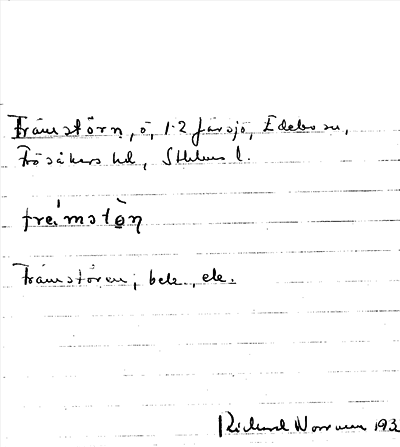 Främstörn, ö, 1-2 Färsjö, Edebo sn,
Frösåkers hd, Sthlms l.
Främstören, beb., ek.
Richard Norrman 193